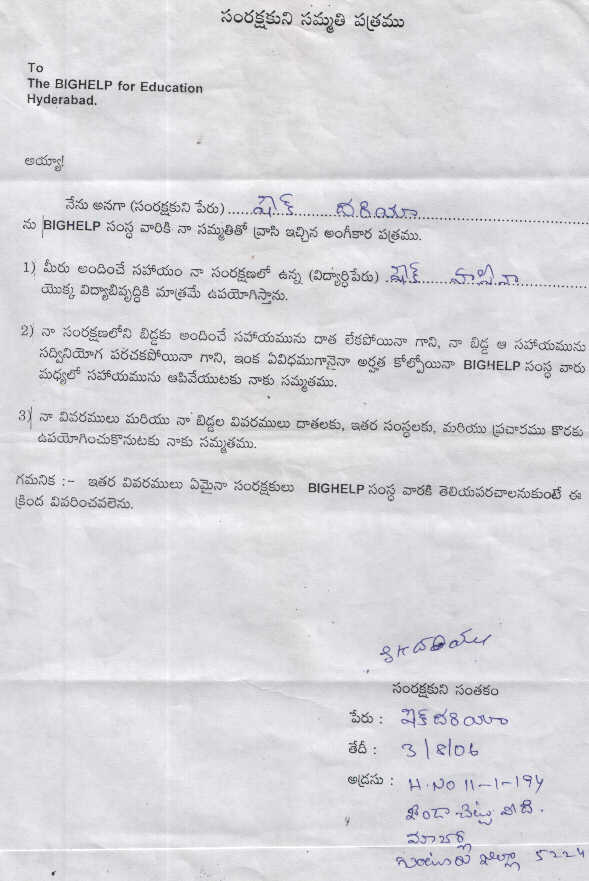 సంరక్షకుని సమ్మతి పత్రము
To
The BIGHELP for Education
Hyderabad.
అయ్యా!
నేను అనగా (సంరక్షకుని పేరు)......షేక్ దరియా......
ను BIGHELP సంస్థ వారికి నా సమ్మతితో వ్రాసి ఇచ్చిన అంగీకార పత్రము.
1) మీరు అందించే సహాయం నా సంరక్షణలో ఉన్న (విద్యార్ధిపేరు) .షేక్
యొక్క విద్యాభివృద్ధికి మాత్రమే ఉపయోగిస్తాను.
2) నా సంరక్షణలోని బిడ్డకు అందించే సహాయమును దాత లేకపోయినా గాని, నా బిడ్డ ఆ సహాయమును
సద్వినియోగ పరచకపోయినా గాని, ఇంక ఏవిధముగానైనా అర్హత కోల్పోయినా BIGHELP సంస్థ వారు
మధ్యలో సహాయమును ఆపివేయుటకు నాకు సమ్మతము.
3) నా వివరములు మరియు నా బిడ్డల వివరములు దాతలకు, ఇతర సంస్థలకు, మరియు ప్రచారము కొరకు
ఉపయోగించుకొనుటకు నాకు సమ్మతము.
గమనిక :- ఇతర వివరములు ఏమైనా సంరక్షకులు BIGHELP సంస్థ వారకి తెలియపరచాలనుకుంటే ఈ
క్రింద వివరించవలెను.
SK దరియా
సంరక్షకుని సంతకం
పేరు : షేక్ దరియా
తేదీ : 3/8/06
అడ్రసు : H.NO 11-1-194
చెట్టు వీది.
మాచర్ల
గుంటూరు జిల్లా 5224